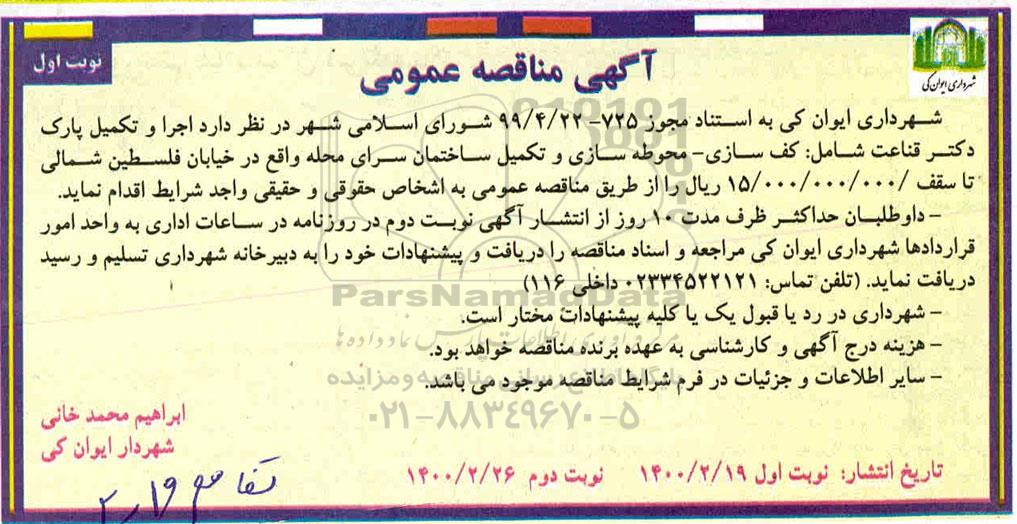 شهرداری ایوان کی
نوبت اول
آگهی مناقصه عمومی
شهرداری ایوان کی به استناد مجوز ۷۲۵- ۹۹/۴/۲۲ شورای اسلامی شهر در نظر دارد اجرا و تکمیل پارک
دکتر قناعت شامل: کف سازی- محوطه سازی و تکمیل ساختمان سرای محله واقع در خیابان فلسطین شمالی
تا سقف /۱۵/۰۰۰/۰۰۰/۰۰۰ ریال را از طریق مناقصه عمومی به اشخاص حقوقی و حقیقی واجد شرایط اقدام نماید.
- داوطلبان حداکثر ظرف مدت ۱۰ روز از انتشار آگهی نوبت دوم در روزنامه در ساعات اداری به واحد امور
قراردادها شهرداری ایوان کی مراجعه و اسناد مناقصه را دریافت و پیشنهادات خود را به دبیرخانه شهرداری تسلیم و رسید
دریافت نماید. (تلفن تماس: ۰۲۳۳۴۵۲۲۱۲۱ داخلی ۱۱۶)
ParsNamadData
- شهرداری در رد یا قبول یک یا کلیه پیشنهادات مختار است.
- هزینه درج آگهی و کارشناسی به عهده برنده مناقصه خواهد بود.
- سایر اطلاعات و جزئیات در فرم شرایط مناقصه موجود می باشد.
۰۲۱-۸۸۳۴۹۶۷۰-۵
ابراهیم محمد خانی
شهردار ایوان کی
تاریخ انتشار: نوبت اول ۱۴۰۰/۲/۱۹ نوبت دوم ۱۴۰۰/۲/۲۶